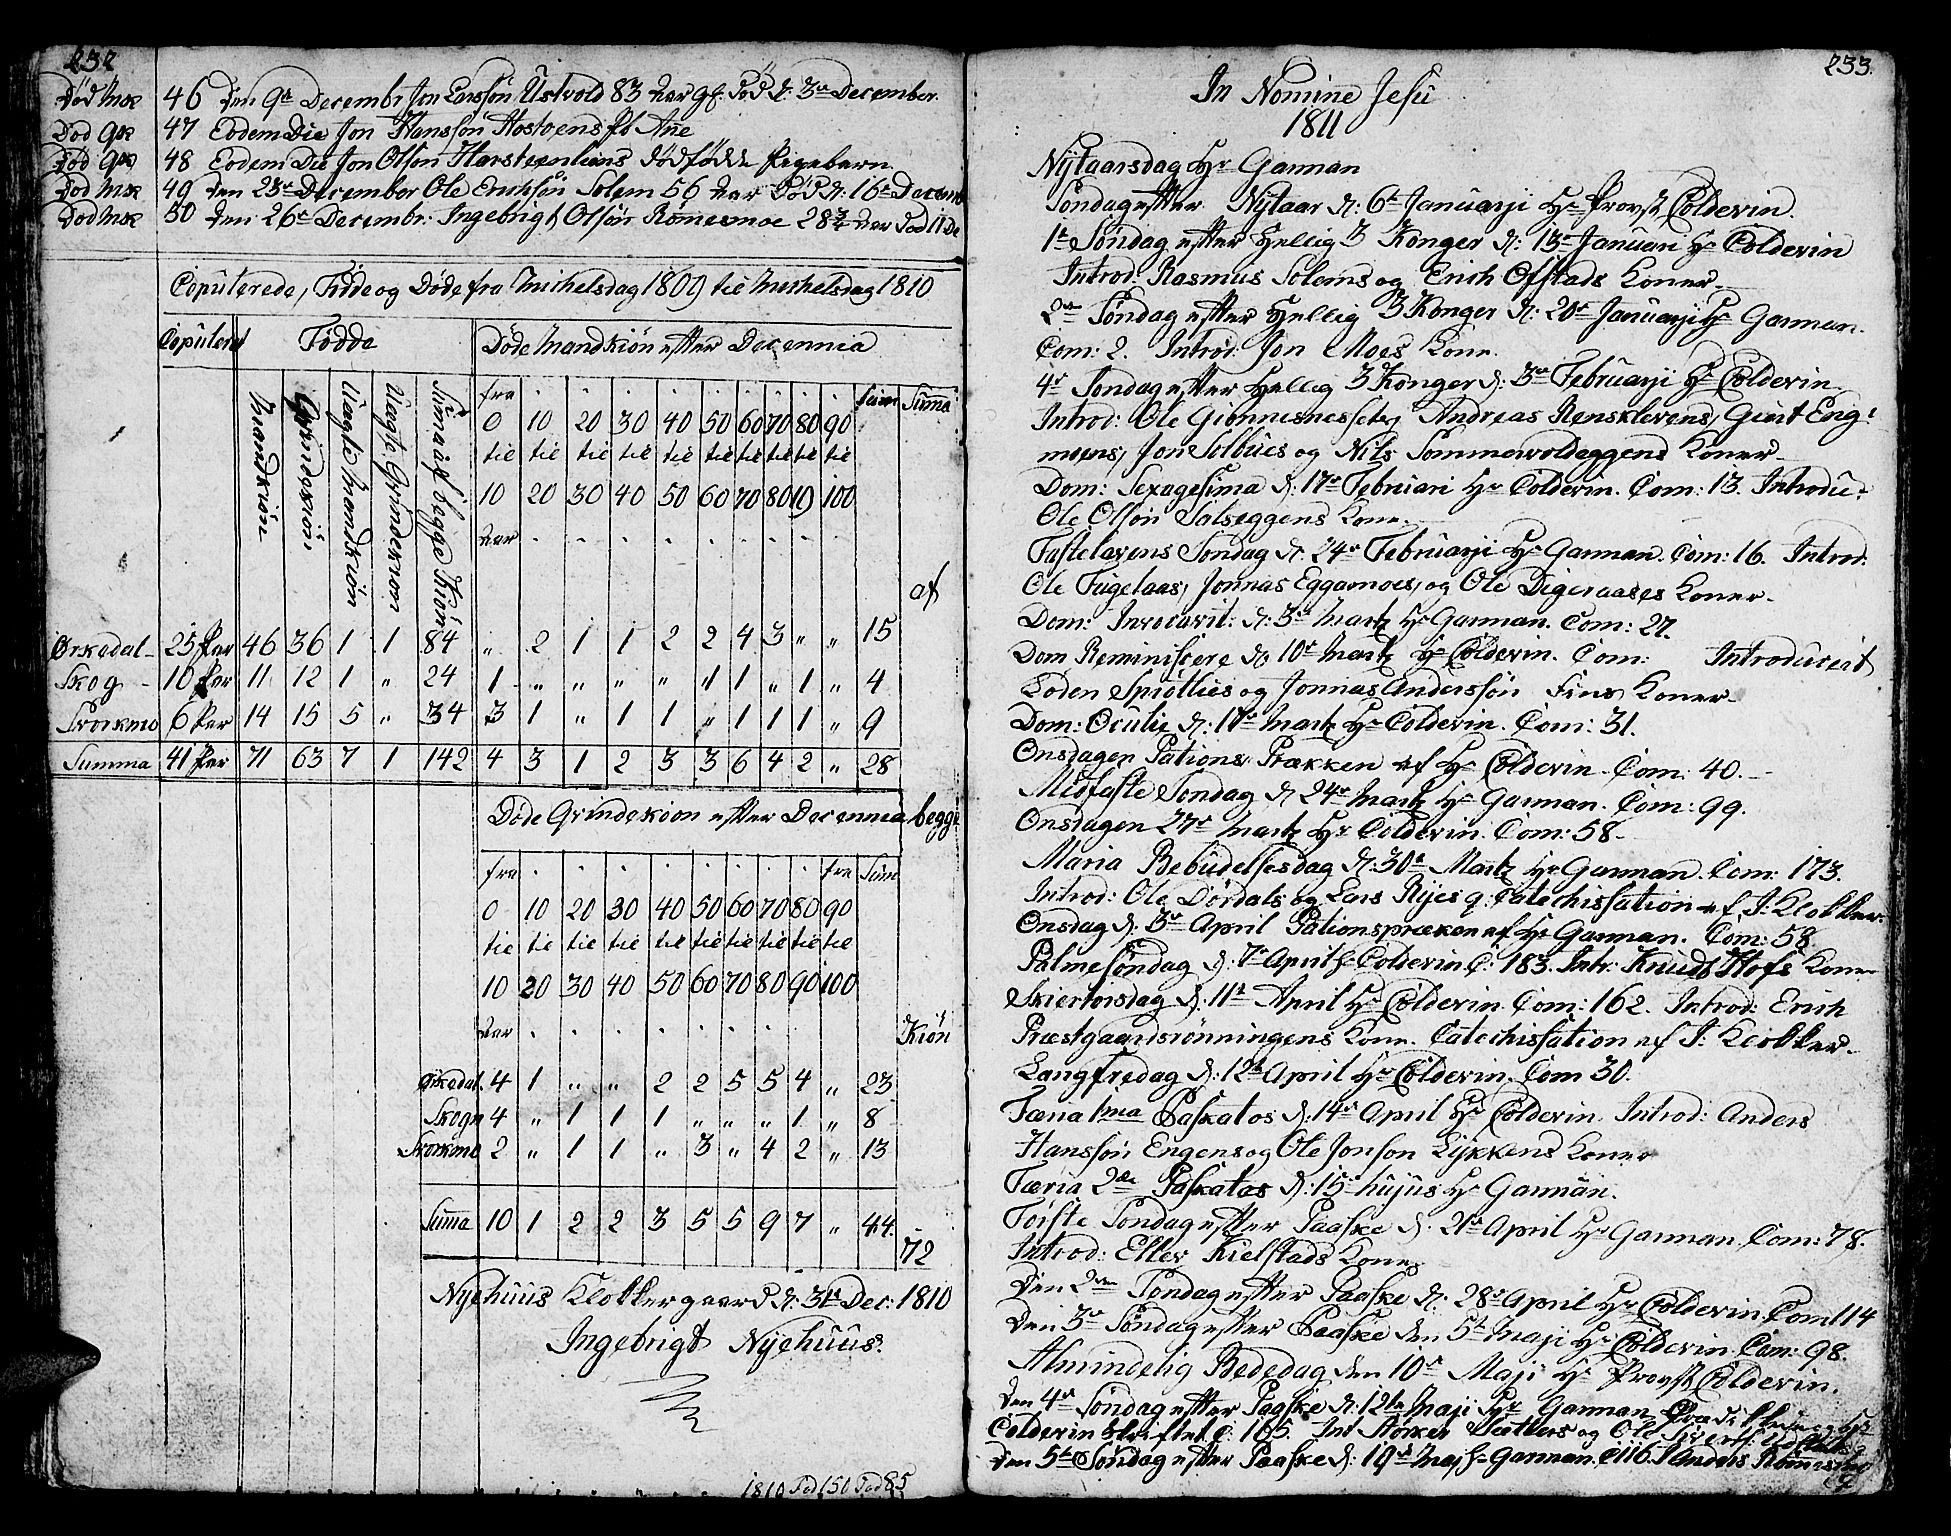 232
Død Mk 46 Den 9de Decembr Jon Larssön Ustvold 83 Aar gl. Död d: 3de December.
Död Qk 47 Eodem Die Jon Hanssön Hostoens fb Ane
Död Qk 48 Eodem Die Jon Olsön Harsteenliens dödfödde Pigebarn
Död Mk 49 Den 23de December Ole Erichsön Solem 56 Aar Död d: 16de Decemb
Död Mk 50 Den 26de Decembr: Ingebrigt Olsön Römesmoe 28 3/4 Aar Död 11 De
Copulerede, Födde og Döde fra Michelsdag 1809 til Michelsdag 1810
Copulered Födde Döde Mandkiön efter Decennia
Mandkiön Qvindekiön Uægte Mandkiön Uægte Qvindekiön Suma af begge Kiön
fra . . . . . . . . . Sum Suma
0 10 20 30 40 50 60 70 80 90
til til til til til til til til til til
10 20 30 40 50 60 70 80 19 100
Aar . . . . . . . .
af
Orkedal 25 Par 46 36 1 1 84 „ 2 1 1 2 2 4 3 „ „ 15
Skog 10 Par 11 12 1 „ 24 1 „ „ „ „ 1 1 „ 1 „ 4
Svorkmo 6 Par 14 15 5 „ 34 3 1 „ 1 1 „ 1 1 1 „ 9
Summa 41 Par 71 63 7 1 142 4 3 1 2 3 3 6 4 2 „ 28
Döde Qvindekiön efter Decennia begge
fra . . . . . . . . fra Sum
0 10 20 30 40 50 60 70 80 90
til til til til til til til til til til
10 20 30 40 50 60 70 80 90 100
Aar . . . . . . .
Kiön
Orkedal 4 1 „ „ 2 2 5 5 4 „ 23
Skogn 4 „ 1 1 1 „ „ „ 1 „ 8
Svorkmo 2 „ 1 1 „ 3 „ 4 2 „ 13
Suma 10 1 2 2 3 5 5 9 7 „ 44.
72
Nyehuus Klokkergaard d: 31te Dec: 1810
Ingebrigt Nyehuus.
1810 Föd 150 Död 85
233.
In Nomine Jesu
1811
Nytaarsdag Hr Garman
Söndag efter Nytaar d: 6te Januarji Hr Provst Colderin.
1te Söndag efter Hellig 3 Konger d: 13de Januari Hr Colderin
Introd: Rasmus Solems og Erich Ofstads Koner
2den Söndag efter Hellig 3 Konger d: 20de Januarji Hr Garman.
Com: 2. Introd: Jon Moes Kone.
4de Söndag efter Hellig 3 Konger d: 3de Februarji Hr Colderin
Introd: Ole Giönnesnesseby, Andreas Rensklevens, Giert Eng:
moens, Jon Solbües og Nils Sommervoldeggens Koner
Dom: Sexagesima d: 17de Februari Hr Colderin. Com: 13. Introdu:
Ole Olsön Solseggens Kone
Fastelavens Söndag d: 24de Februarji Hr Garman. Com: 16. Introd:
Ole Fugelaas, Jonnas Eggamoes, og Ole Digeraases Koner
Dom: Invocavit: d: 3de Martz Hr Garman. Com: 27.
Dom Reminiscere d: 10de Martz Hr Colderin. Com: Introduceret
Loden Spröttlies og Jonnas Anderssön Fins Koner
Dom: Oculi d: 17de Martz Hr Colderin. Com: 31.
Onsdagen Pations Præken af Hr Colderin. Com: 40.
Midfaste Söndag d 24de Martz Hr Garman. Com: 99.
Onsdagen 27de Martz Hr Colderin. Com: 58
Maria Bebudelsesdag d: 30te Martz Hr Garman. Com: 173.
Introd: Ole Dördals og Lars Ryjes q: Catechisation af I: Klokker.
Onsdag d: 3de April Pationspræken af Hr Garman. Com: 58
Palmesöndag d: 7de April Hr Colderin C: 183. Intr: Knuds Hofs Kone
Skiertorsdag d: 11te April Hr Colderin. Com: 162. Introd: Erich
Præstgaardsrönningens Kone. Catechisation af I: Klokker
Langfredag d: 12te April Hr Colderin. Com 30.
Færia 1ma Paskatos d: 14de April Hr Colderin. Introd: Anders
Hanssön Engens og Ole Jonson Lykkens Koner
Færia 2da Paskatos d: 15de hujus Hr Garman.
Förste Söndag efter Paaske d: 21de April Hr Garman. Com: 78.
Introd: Eller Kielstads Kone
Den 2den Söndag efter Paaske d: 28de April Hr Colderin Com 114
Den 3de Söndag efter Paaske den 5te Maji Hr Colderin. Com: 98.
Almindelig Bededag den 10de Maji Hr Provst Colderin.
Den 4de Söndag efter Paaske d: 12te Maji Hr Garman
Colderin C: 165. Int og Ole
Den 5te Söndag efter Paaske d: 19de Maj Hr Garman. C 116. I Anders Römesmo